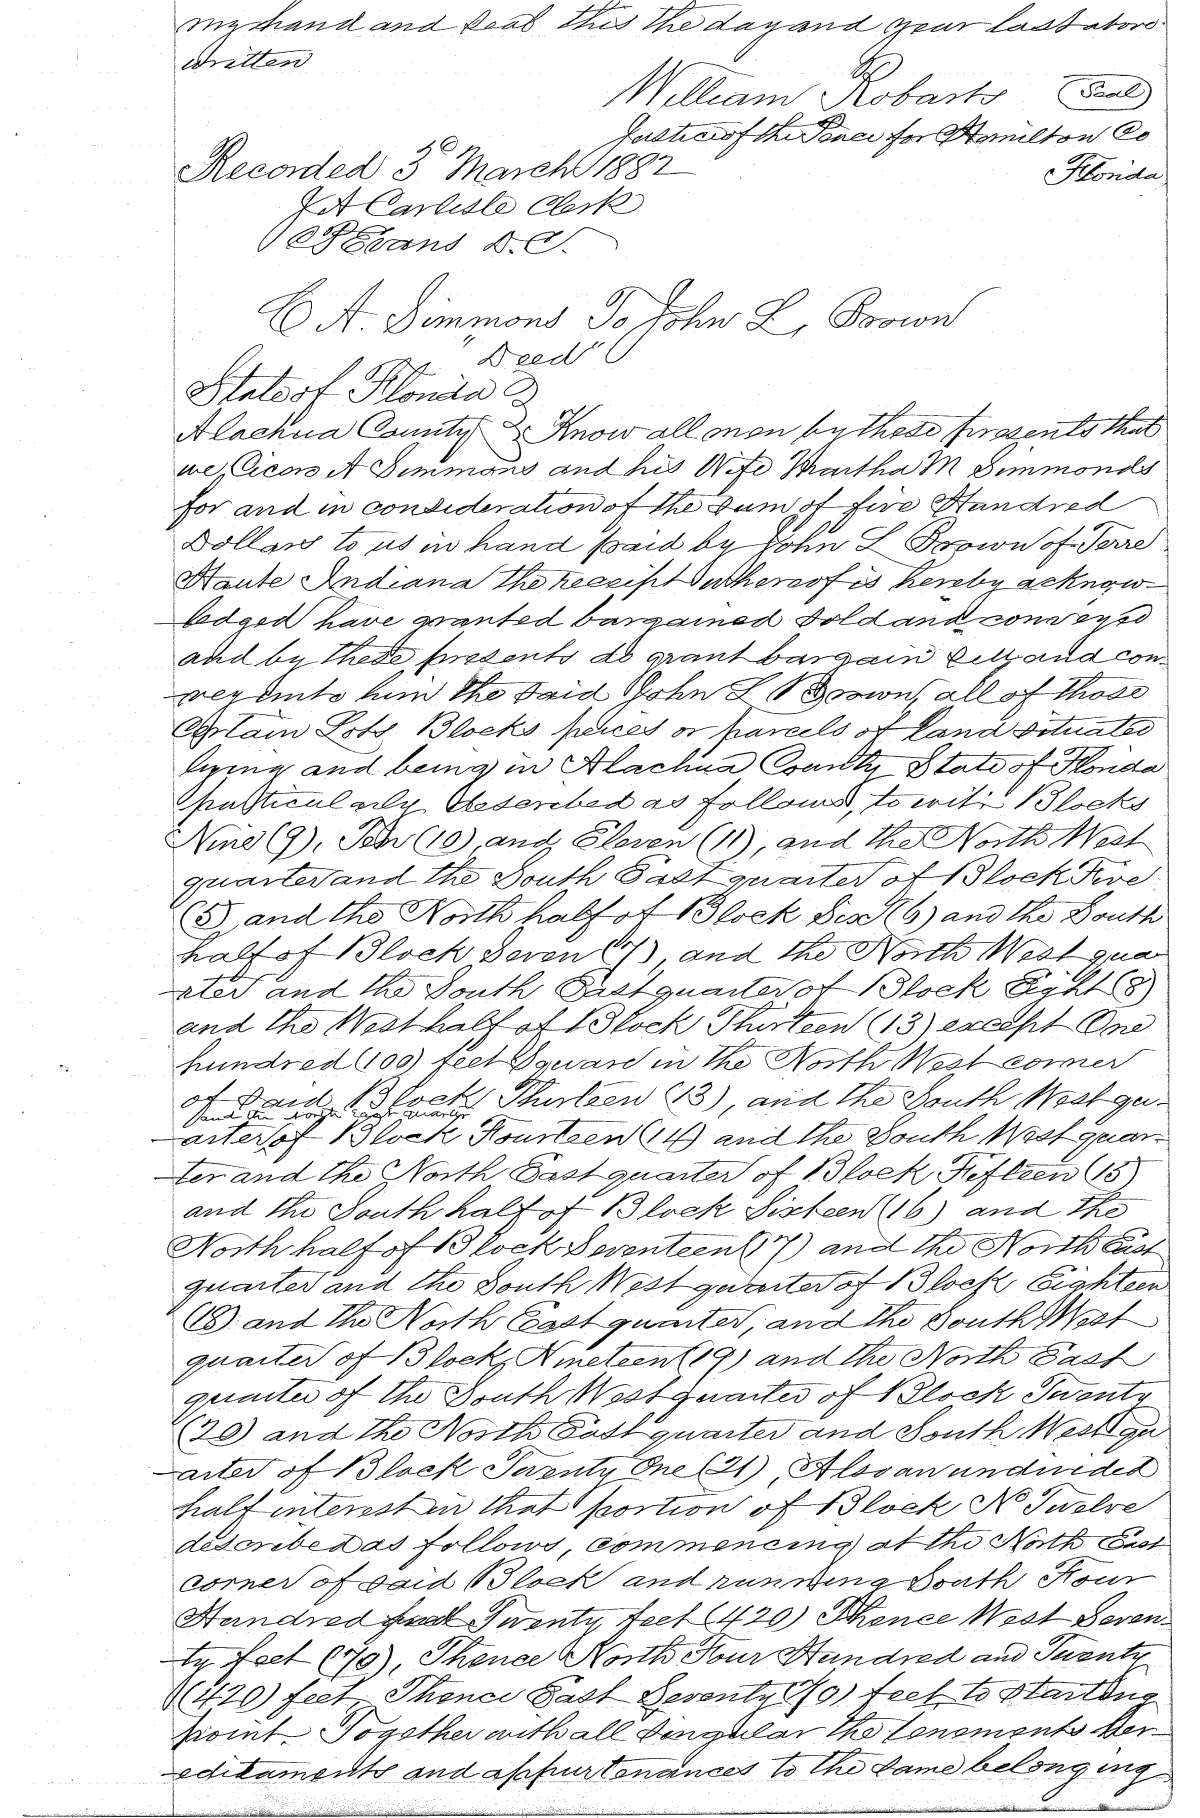 my hand and seal this the day and year last above
written
William Robarts (Seal)
Justice of the Peace for Hamilton Co
Florida
Recorded 3d March 1882
J A Carlisle Clerk
Evans D. C.
C A. Simmons To John L, Brown
"Deed"
State of Florida
Alachua County Know all men by these presents that
we, Cicero A Simmons and his Wife Martha M Simmonds
for and in consideration of the sum of five Hundred
Dollars to us in hand paid by John L Brown of Terre
Haute Indiana the receipt whereof is hereby acknow-
ledged have granted bargained sold and conveyed
and by these presents do grant bargain sell and con-
vey unto him the said John L Brown, all of those
certain Lots Blocks peices or parcels of land situated
lying and being in Alachua County State of Florida
particularly described as follows, to wit: Blocks
Nine (9), Ten (10), and Eleven (11), and the North West
quarter and the South East quarter of Block Five
(5) and the North half of Block Six (6) and the South
half of Block Seven (7), and the North West qua-
rter and the South East quarter of Block Eight (8)
and the West half of Block Thirteen (13) except One
hundred (100) feet Square in the North West corner
of said Block Thirteen (13), and the South West qu-
and the North East quarter
arter of Block Fourteen (14) and the South West quar-
ter and the North East quarter of Block Fifteen (15)
and the South half of Block Sixteen (16) and the
North half of Block Seventeen (17) and the North East
quarter and the South West quarter of Block Eighteen
(18) and the North East quarter, and the South West
quarter of Block, Nineteen (19) and the North East
quarter of the South West quarter of Block Twenty
(20) and the North East quarter and South West qu
arter of Block Twenty One (21), Also an undivided
half interest in that portion of Block No Twelve
described as follows, commencing at the North East
corner of said Block and running South Four
Hundred Twenty feet (420) Thence West Seven-
ty feet (70), Thence North Four Hundred and Twenty
(420) feet, Thence East Seventy (70) feet to starting
point. Together with all singular the tenements her-
editaments and appurtenances to the same belonging